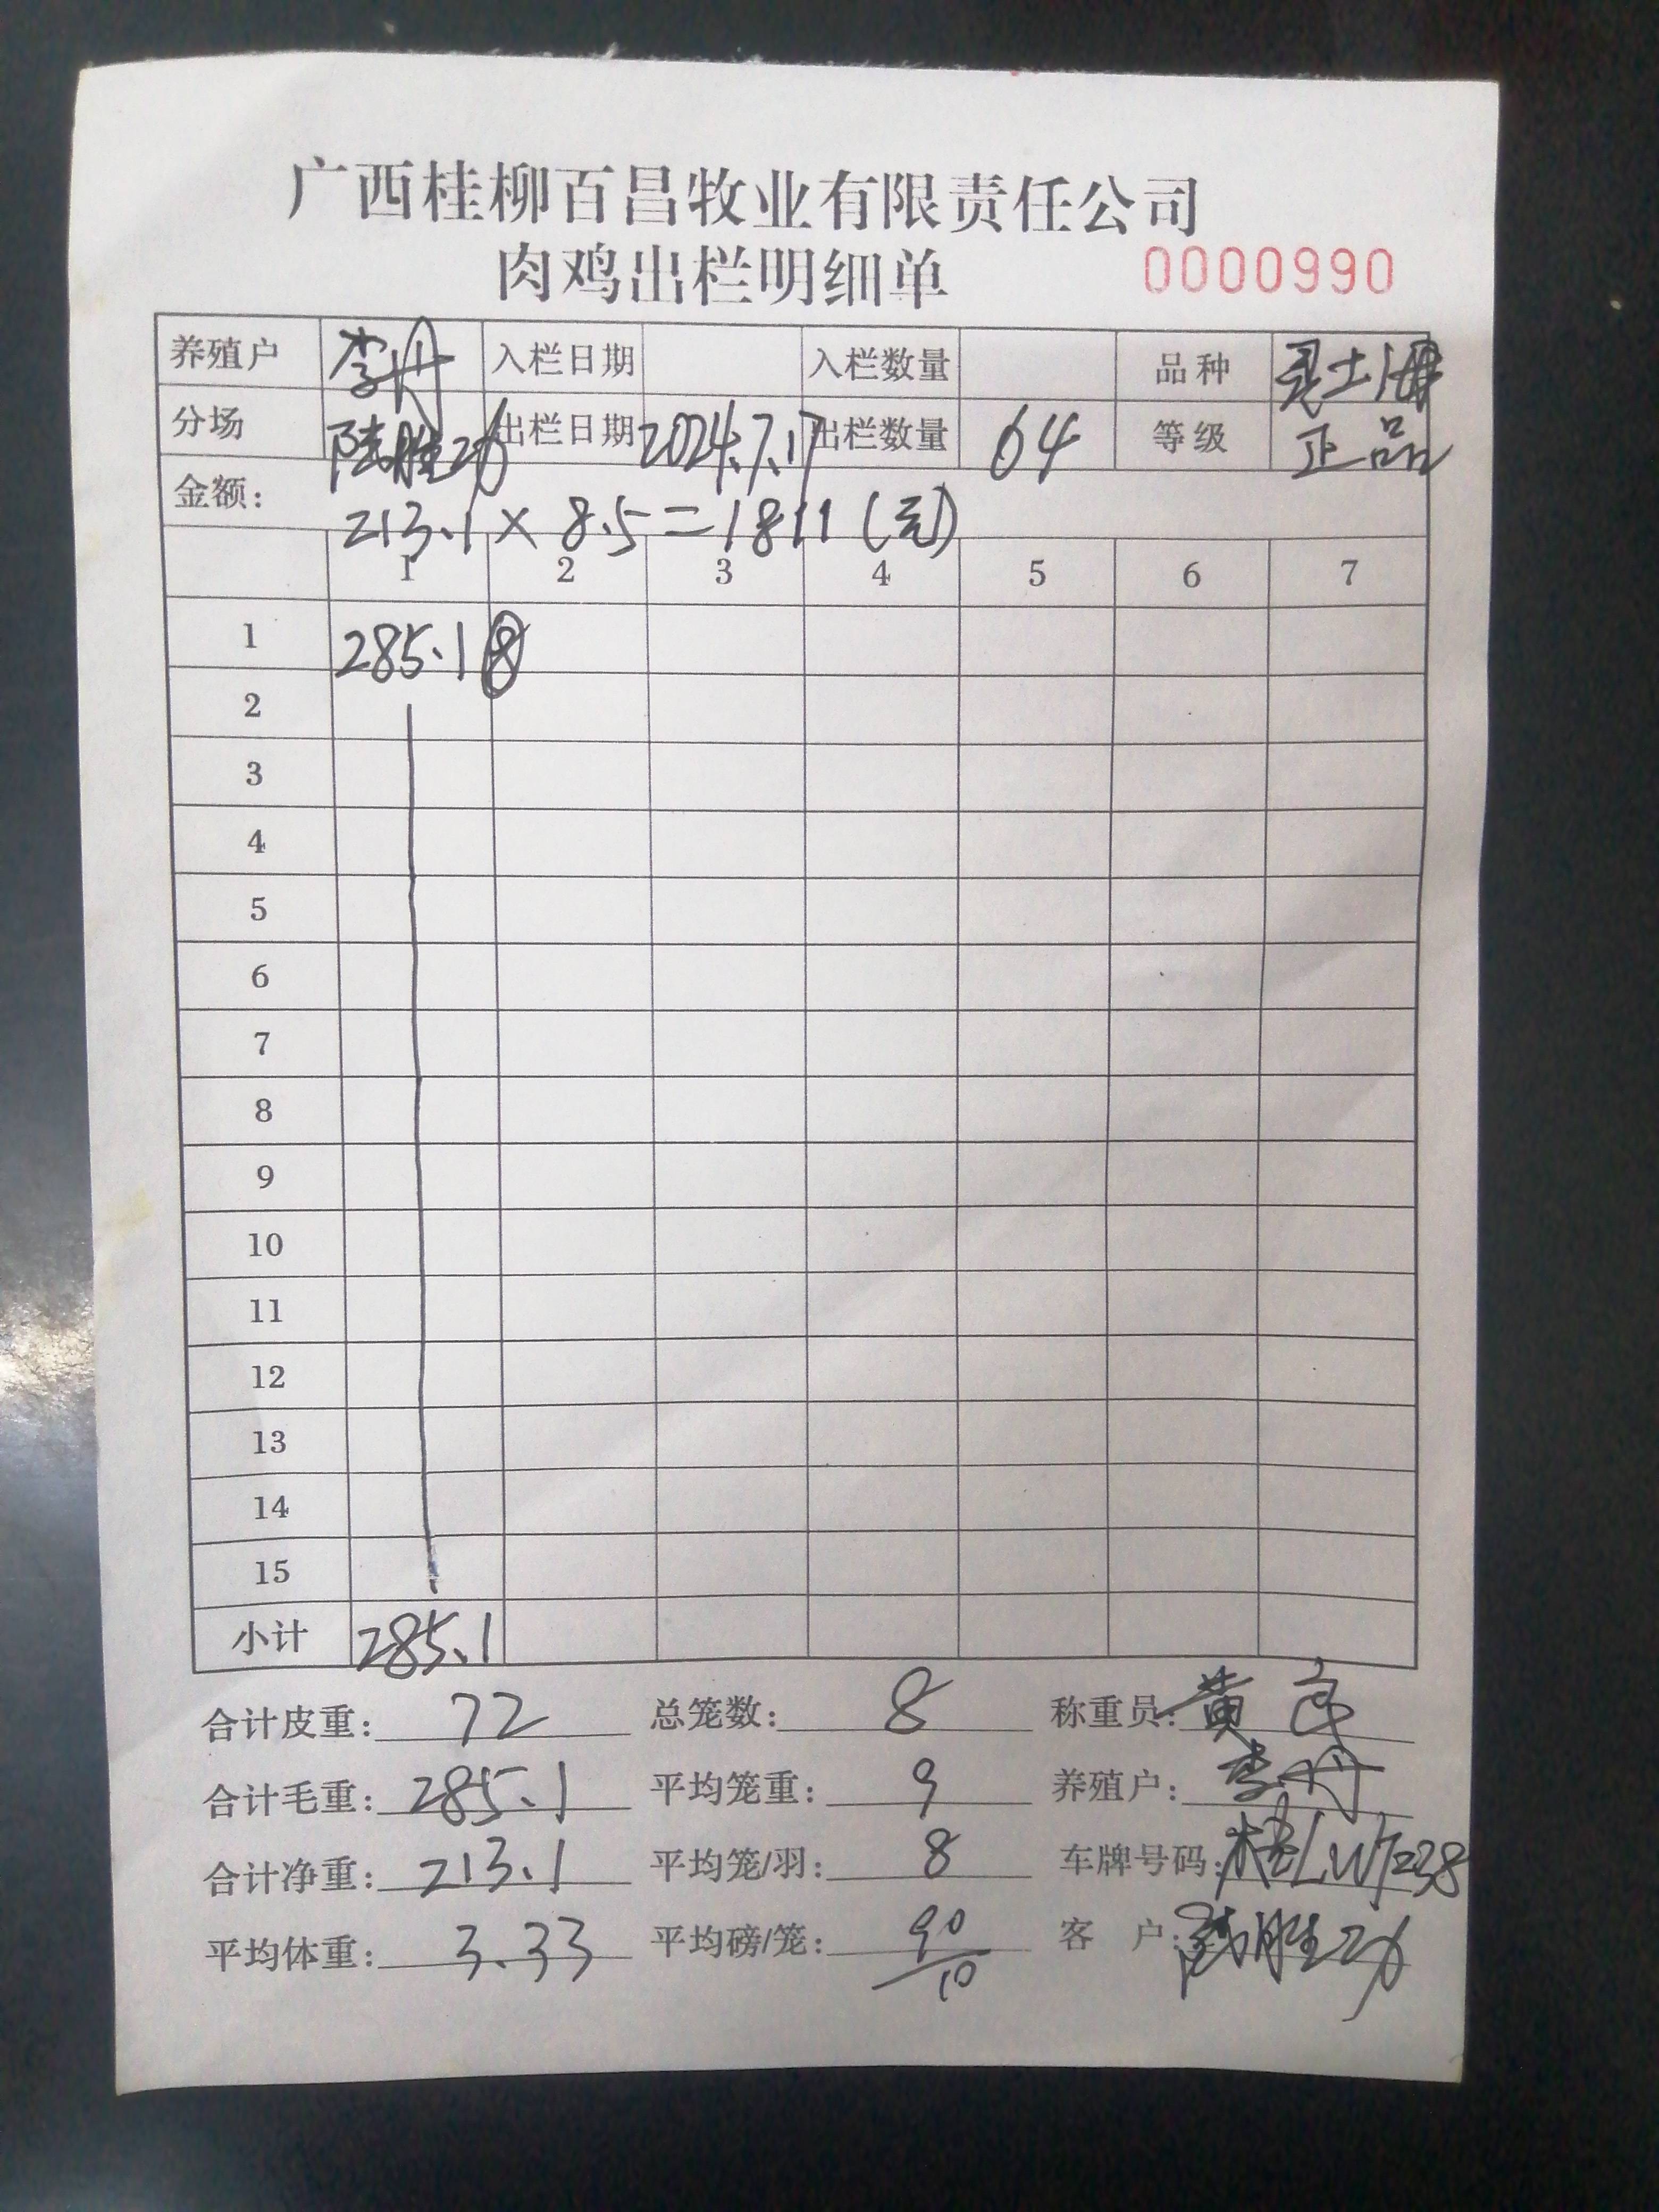 广西桂柳百昌牧业有限责任公司
肉鸡出栏明细单 0000990
养殖户 李丹 入栏日期 入栏数量 品种 土
分场 陆胜功 出栏日期 2024.7.17 出栏数量 64 等级 正品
金额: 213.1 × 8.5 = 1811 (元)
1 2 3 4 5 6 7
1 285.1 8
2
3
4
5
6
7
8
9
10
11
12
13
14
15
小计 285.1
合计皮重: 72 总笼数: 8 称重员: 黄
合计毛重: 285.1 平均笼重: 9 养殖户: 李丹
合计净重: 213.1 平均笼/羽: 8 车牌号码:
平均体重: 3.33 平均磅/笼: 90/10 客 户: 陆胜功